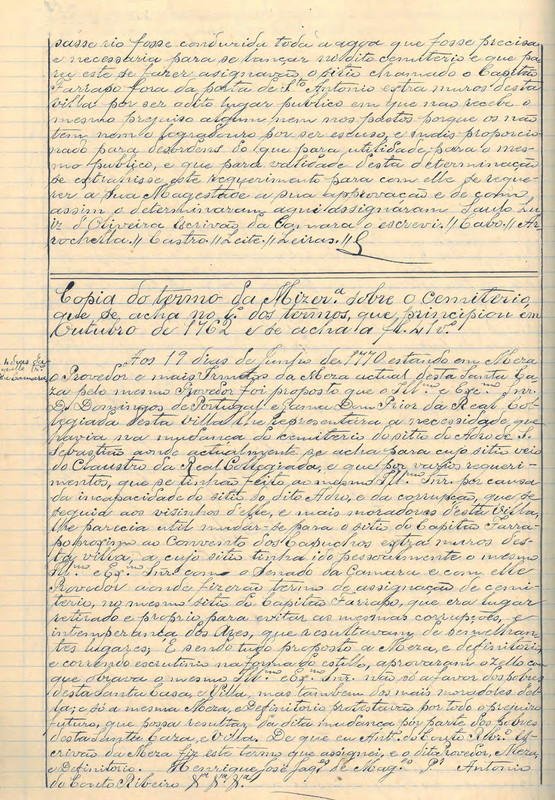 passeio fosse conduzida toda a agoa que fosse precisa
e necessaria para se lançar no dito cemiterio e que pa
ra este se fazer asignação o sitio chamado o Capitão
Farrapo fora da porta de S.to Antonio extra muros desta
villa por ser adito lugar publico em que não recebe o
mesmo prejuiso algum nem nos pastos porque os não
tem nem o logradouro por ser escuso, e mais proporcio
nado para desordens do que para utilidade para o mes-
mo publico, e que para validade desta determinação
se extrahisse este requerimento para com elle se reque-
rer a Sua Magestade a sua approvação e de como
assim o determinaram aqui assignáram Paulo Lu
iz d'Oliveira Escrivão da Camara o escrevi. // Cabo. // Ar
rochella. // Castro. // Leite. // Leiras. //
Copia do termo da Mizer.a sobre o cemiterio,
que se acha no L.o dos termos, que principiou em
Outubro de 1762 e se acha a fl. 21 v.o
Aos 19 dias de Junho de 1770 estando em Meza
o Provedor e mais Irmãos da Meza actual desta Santa Ca
za pelo mesmo Provedor foi proposto que o Ill.mo e Ex.mo Snr.
D. Domingos de Portugal e Gama Dom Prior da Real Col-
legiada desta Villa lhe representára a necessidade que
havia na mudança do cemiterio do sitio do Adro de S.
Sebastião aonde actualmente se acha para cujo sitio veio
do Claustro da Real Collegiada, e que por varios requeri-
mentos, que se tinhão feito, ao mesmo Ill.mo Snr. por causa
da incapacidade do sitio do dito Adro, e da corrupção, que se
seguia aos visinhos d'elle, e mais moradores desta Villa,
lhe parecia util mudar-se para o sitio do Capitão Farra-
po proximo ao Convento dos Capuchos extra muros des-
ta villa, a cujo sitio tinha ido pessoalmente o mesmo
Ill.mo e Ex.mo Snr. com o Senado da Camara e com elle
Provedor aonde fizerão termo de assignação de cemi-
terio, no mesmo sitio do Capitão Farrapo, que era lugar
retirado e proprio para evitar as mesmas corrupções, e
intemperança dos Ares, que resultavam de semelhan
tes lugares; E sendo tudo proposto a Meza, e definitorio
e correndo escrutinio na forma do estillo, aprovaram o zello com
que obrava o mesmo Ill.mo e Ex.mo Snr. não só a favor dos pobres
desta Santa Casa, e Villa, mas tambem dos mais moradores del-
la; e só a mesma Meza, e Definitorio protestavão por todo o prejuizo
futuro, que possa resultar da dita mudança por parte dos pobres
desta Santa Caza, e Villa. De que eu Ant.o do Couto Rib.ro Es-
crivão da Meza fiz este termo que assignei, e o dito Provedor, Meza,
e Definitorio. Henrique José de Mag.es P.r Antonio
do Couto Ribeiro